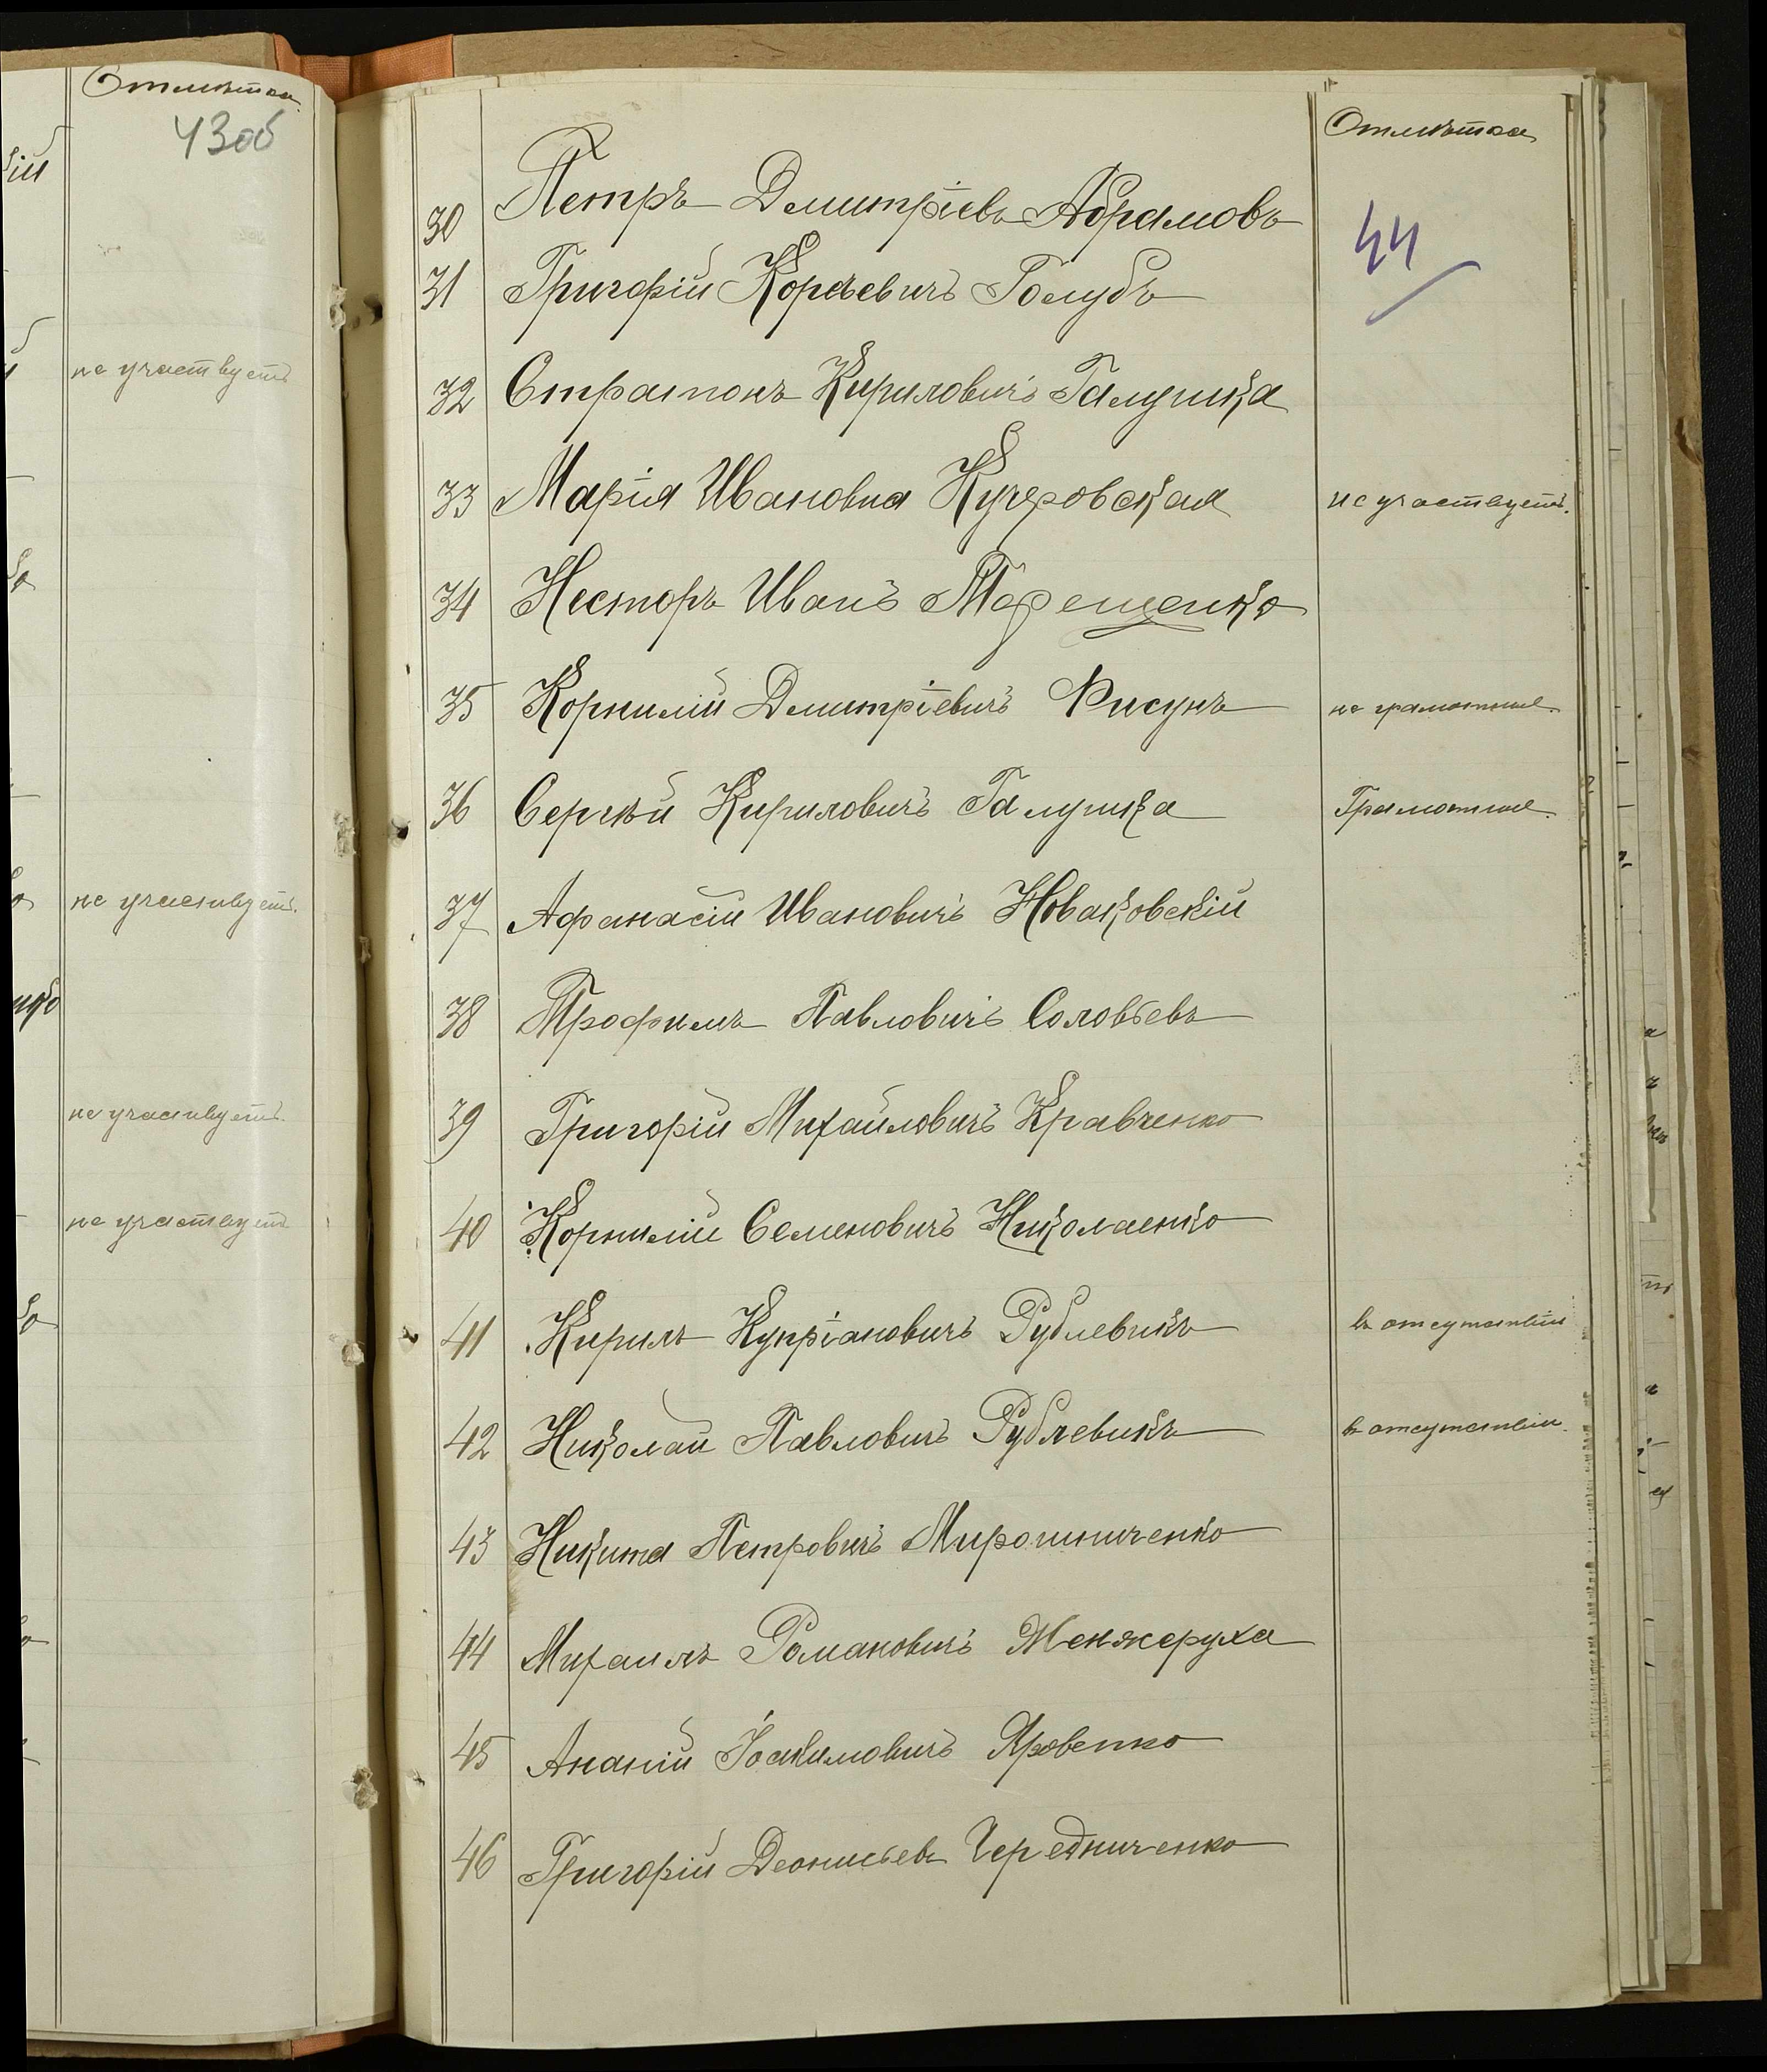 Отмѣтка.
43об
не участвуетъ
не участвуетъ.
не участвуетъ.
не участвуетъ
Отмѣтка
44
30 Петръ Дмитріевъ Абрамовъ
31 Григорій Корнѣевичъ Голубъ
32 Стратонъ Кириловичъ Галушка
33 Марія Ивановна Кучеровская не участвуетъ.
34 Несторъ Иванъ Терещенко
35 Корнилій Дмитріевичъ Рисунъ не грамотные.
36 Сергѣй Кириловичъ Галушка Грамотные.
37 Афанасій Ивановичъ Новаковскій
38 Трофимъ Павловичъ Соловьевъ
39 Григорій Михайловичъ Кравченко
40 Корнилій Семеновичъ Николаенко
41 Кирилъ Купріановичъ Рублевикъ въ отсутствіи
42 Николай Павловичъ Рублевикъ въ отсутствіи.
43 Никита Петровичъ Мирошниченко
44 Михаилъ Романовичъ Менжеруха
45 Ананій Іоакимовичъ Яровенко
46 Григорій Деонисьевъ Чередниченко